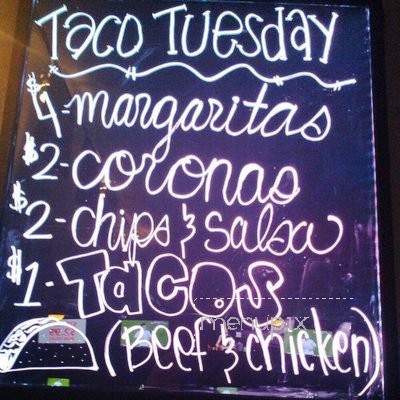 Taco Tuesday
$4-margaritas
$2-coronas
$2-chips & salsa
$1-TaCOS
menupix
(Beef & chicken)